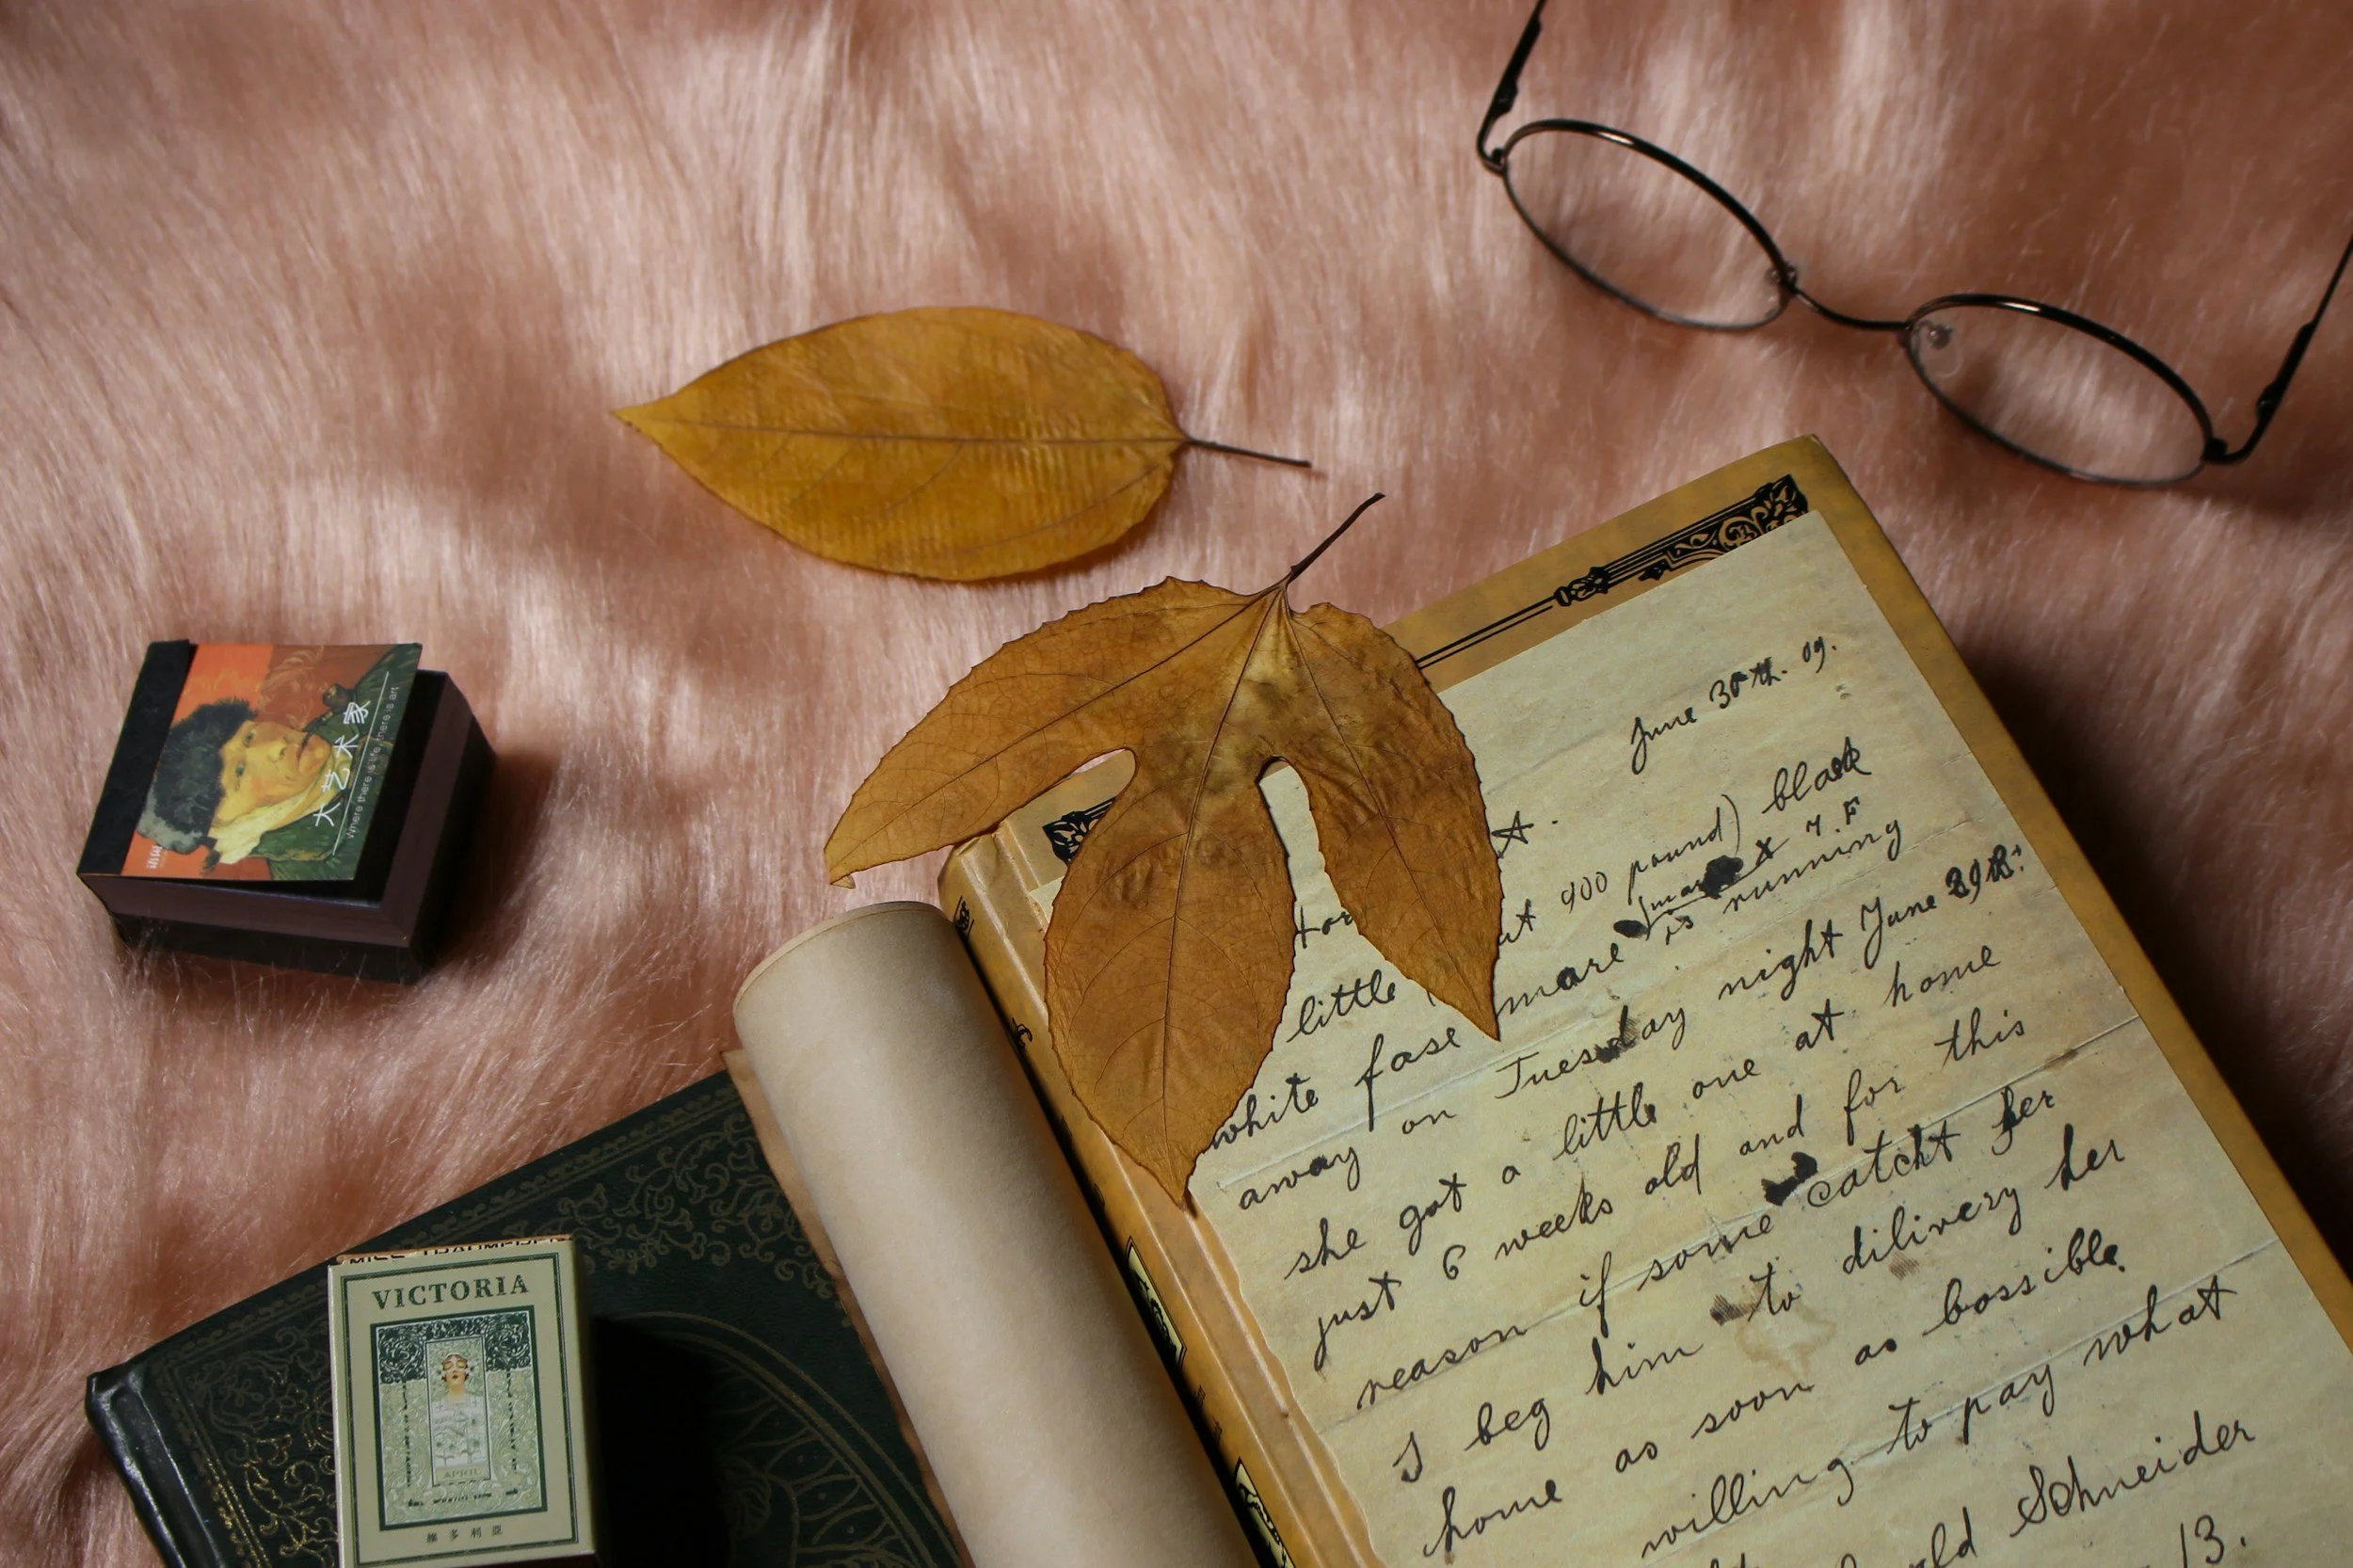 June 30th. 09.
900 pound) black
little mare is running
white fase
away on Tuesday night June 29th.
she got a little one at home
just 6 weeks old and for this
reason if some catcht her
I beg him to dilivery her
home as soon as bossible.
willing to pay what
Schneider
13.
大艺术家
Where there is life, there is art
VICTORIA
APRIL
維多利亞